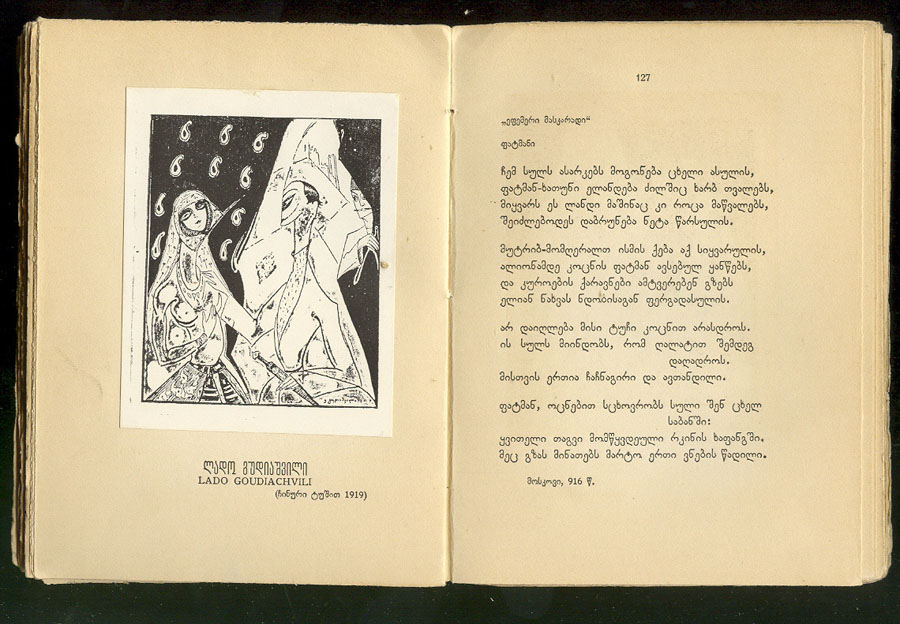 ლადო გუდიაშვილი
LADO GOUDIACHVILI
(ჩინური ტუშით 1919)
127
„ეფემერი მასკარადი“
ფატმანი
ჩემ სულს ასარკებს მოგონება ცხელი ასულის,
ფატმან-ხათუნი ელანდება ძილშიც ხარბ თვალებს,
მიყვარს ეს ლანდი მაშინაც კი როცა მაწვალებს,
შეიძლებოდეს დაბრუნება ნეტა წარსულის.
მუტრიბ-მომღერალთ ისმის ქება აქ სიყვარულის,
ალიონამდე კოცნის ფატმან ავსებულ ყანწებს,
და კუროების ქარავნები ამტვერებენ გზებს
ელიან ნახვას ნდობისაგან ფერგადასულის.
არ დაიღლება მისი ტუჩი კოცნით არასდროს.
ის სულს მიინდობს, რომ ღალატით შემდეგ
დაღადროს.
მისთვის ერთია ჩაჩნაგირი და ავთანდილი.
ფატმან, ოცნებით სცხოვრობს სული შენ ცხელ
საბანში:
ყვითელი თაგვი მომწყვდეული რკინის ხაფანგში.
მეც გზას მინათებს მარტო ერთი ვნების წადილი.
მოსკოვი, 916 წ.